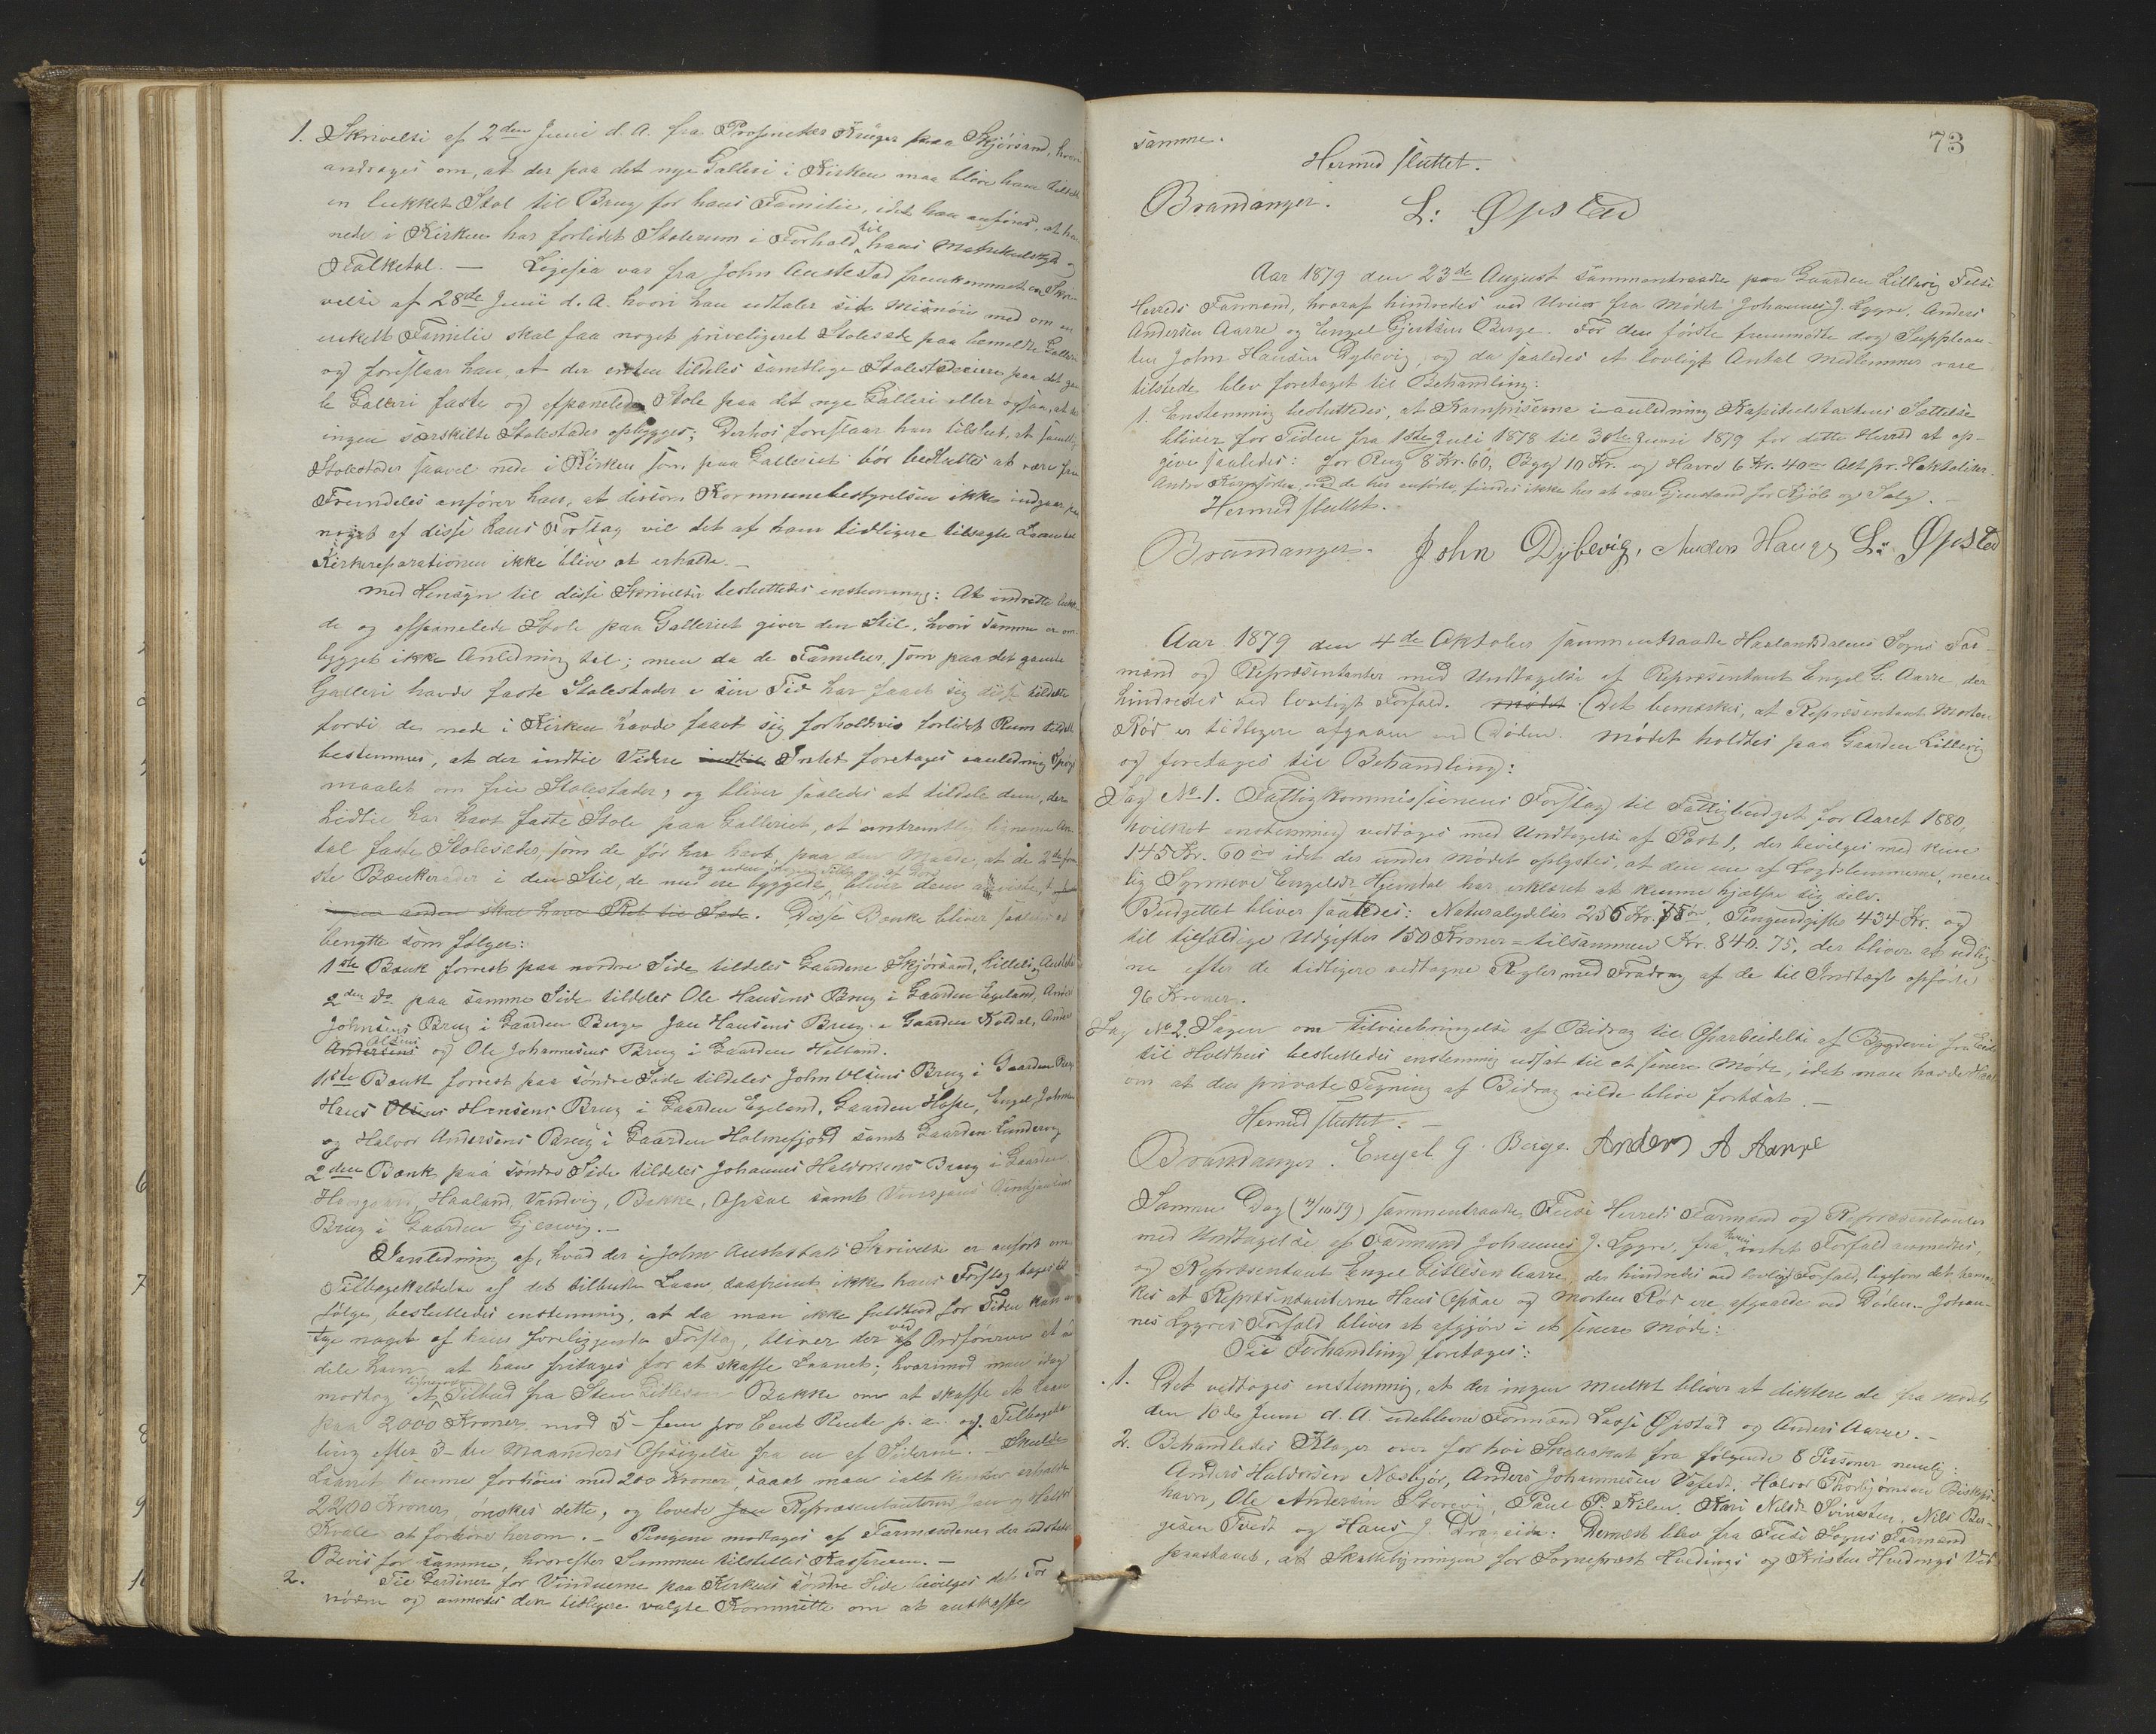 1. Skrivelse af 2den Juni d. A. fra Proprietær Krüger paa Skjörsand, hvori
andrages om, at der paa det nye Galleri i Kirken maa blive ham tildelt
en lukket Stol til Brug for hans Familie, idet han anförer, at han
nede i Kirken har forlidet Stolerum i Forhold til hans Matrikulskyld og
Folketal. — Ligesia var fra John Austestad fremkommet en Skri-
velse af 28de Juni d. A. hvori han udtaler sit Misnöie med om en
enkelt Familie skal faa noget priveligeret Stolesæde paa bemeldte Galleri
og foreslaar han, at der enten tildeles samtlige Stolestadeeiere paa det gam-
le Galleri faste og afpanelede Stole paa det nye Galleri eller ogsaa, at
ingen særskilte Stolestader opbygges; Derhos foreslaar han tilslut, at samtlige
Stolestader saavel nede i Kirken som paa Galleriet bör besluttes at være frie
Fremdeles anförer han, at dersom Kommunebestyrelsen ikke indgaar paa
noget af disse hans Forslag vil det af ham tidligere tilsagte Laan til
Kirkereparationen ikke blive at erholde. —
Med Hensyn til disse Skrivelser besluttedes enstemmig: At indrette lukke-
de og afpanelede Stole paa Galleriet giver den Stil, hvori samme er om-
bygget ikke Anledning til; men da de Familier, som paa det gamle
Galleri havde faste Stolestader i sin Tid har faaet sig disse tildelte
fordi de nede i Kirken havde faaet sig forholdsvis forlidet Rum tildelt
bestemmes, at der indtil Videre indtil Intet foretages ianledning Spörgs-
maalet om frie Stolestader, og bliver saaledes at tildele dem, der
hidtil har havt faste Stole paa Galleriet, et omtrentlig lignende An-
tal faste Stolesæder, som de för har havt, paa den Maade, at de 2de for-
ste Bænkerader i den Stil, de nu ere byggede, bliver dem anviste,
ingen anden skal have Ret til Sæde. Disse Bænke bliver saaledes at
benytte som fölger:
1ste Bænk forrest paa nordre Side tildeles Gaardene Skjörsand, Lilletvig, Austestad
2den do paa samme Side tildeles Ole Hansens Brug i Gaarden Egeland, Anders
Johnsens Brug i Gaarden Berge Jan Hansens Brug i Gaarden Koldal, Anders
Andersens Olsens og Ole Johannesens Brug i Gaarden Helland.
1ste Bænk forrest paa söndre Side tildeles John Olsens Brug i Gaarden Berge
Hans Olsens Hansens Brug i Gaarden Egeland, Gaarden Hope, Engel Johnsens
og Halvor Andersens Brug i Gaarden Holmefjord samt Gaarden Lundervig
2den Bænk paa söndre Side tildeles Johannes Haldorsens Brug i Gaarden
Haaland, Vandvig, Bakke, Opsal samt Vinsjans
Brug i Gaarden Gjerevig. —
Ianledning af, hvad der i John Austestads Skrivelse er anfört om
Tilbagekaldelse af det tilbudte Laan, saafremt ikke hans Forslag tages til
fölge, besluttedes enstemmig, at da man ikke fuldtud for Tiden kan an-
tage noget af hans foreliggende Forslag, bliver der ved Ordföreren at med-
dele ham, at han fritages for at skaffe Laanet; hvorimod man idag
modtog et lignende Tilbud fra Sten Gitlesen Bakke om at skaffe et Laan
paa 2000 Kroner mod 5 – fem pro Cent Rente p. a. og Tilbagebeta-
ling efter 3 – tre Maaneders Opsigelse fra en af Siderne. — Skulde
Laanet kunne forhöies med 200 Kroner, saaat man ialt kunde erholde
2200 Kroner, önskes dette, og lovede Repræsentanterne Jan og Halvor
Kvale at forhöre herom. — Pengene modtages af Formændene der udsteder
Bevis for samme, hvorefter Summen tilstilles Kassereren. —
2. Til Gardiner for Vinduerne paa Kirkens söndre Side bevilges det For-
nödne og anmodes den tidligere valgte Kommitte om at anskaffe
73
samme.
Hermed sluttet.
Brandanger. L: Øpsted
Aar 1879 den 23de August sammentraadte paa Gaarden Lillevig Fuse
Herreds Formænd, hvoraf hindredes ved Uveir fra Mödet Johannes J. Lygre, Anders
Andersen Aarre og Engel Gjertsen Berge. For den förste fremmödte dog Supplean-
ten John Hansen Dybevig, og da saaledes et lovligt Antal Medlemmer vare
tilstede blev foretaget til Behandling:
1. Enstemmig besluttedes, at Kornpriserne i anledning Kapitelstaxtens Sættelse
bliver for Tiden fra 1ste Juli 1878 til 30te Juni 1879 for dette Herred at op-
give saaledes: for Rug 8 Kr. 60, Byg 10 Kr. og Havre 6 Kr. 40 öre Alt pr. Hektoliter.
Andre Kornsorter, end de her anförte, findes ikke her at være Gjenstand for Kjöb og Salg. —
Hermed sluttet.
Brandanger. John Dybevig, Anders Hauge, L: Øpsted
Aar 1879 den 4de Oktober sammentraadte Haalandsdalens Sogns For-
mænd og Repræsentanter med Undtagelse af Repræsentant Engel G. Aarre, der
hindredes ved lovligt Forfald. Mödet Det bemærkes, at Repræsentant Morten
Röd er tidligere afgaaen ved Döden. Mödet holdtes paa Gaarden Lillevig
og foretages til Behandling:
Sag No 1. Fattigkommissionens Forslag til Fattigbudget for Aaret 1880,
hvilket enstemmig vedtoges med Undtagelse af Post 1, der bevilges med kun
145 Kr. 60 öre idet der under Mödet oplystes, at den ene af Lægdslemmerne, nem-
lig Synneve Engelsdr Hjemdal har erklæret at kunne hjælpe sig selv.
Budgettet bliver saaledes: Naturalydelser 256 Kr. 75 öre, Pengeudgifter 434 Kr. og
til tilfældige Udgifter 150 Kroner = tilsammen Kr. 840. 75, der bliver at udlig-
ne efter de tidligere vedtagne Regler med Fradrag af de til Indtægt opförte
96 Kroner.
Sag No 2. Sagen om Tilveiebringelse af Bidrag til Oparbeidelse af Bygdevei fra Eide
til Holdhus besluttedes enstemmig udsat til et senere Möde, idet man havde Haab
om at den private Tegning af Bidrag vilde blive fortsat. —
Hermed sluttet. —
Brandanger. Engel G. Berge. Anders A Aarre
Samme Dag (4/10 79) sammentraadte Fuse Herreds Formænd og Repræsentanter
med Undtagelse af Formand Johannes J. Lygre, fra hvem intet Forfald anmeldtes,
og Repræsentant Engel Gitlesen Aarre, der hindredes ved lovligt Forfald, ligesom det bemær-
kes at Repræsentanterne Hans Opsal og Morten Röd ere afgaaede ved Döden. Johan-
nes Lygres Forfald bliver at afgjöre i et senere Möde:
Til Forhandling foretages:
1. Det vedtoges enstemmig, at der ingen Mulkt bliver at diktere de fra Mödet
den 10de Juni d. A. udeblevne Formænd Lasse Øpstad og Anders Aarre. —
2. Behandledes Klager over for höi Skoleskat fra fölgende 8 Personer nemlig:
Anders Haldorsen Næsbjör, Anders Johannesen Vefedt, Halvor Thorbjörnsen Biskops-
havn, Ole Andersen Storevig, Paul P. Kilen, Kari Nilsdr Svinesten, Nils Bør-
gesen Tvedt og Hans J. Drageide: Dernæst blev fra Fuse Sogns Formænd
paastaaet, at Skatteligningen for Sogneprest Hvidings og Kristen Hvidings Ved-